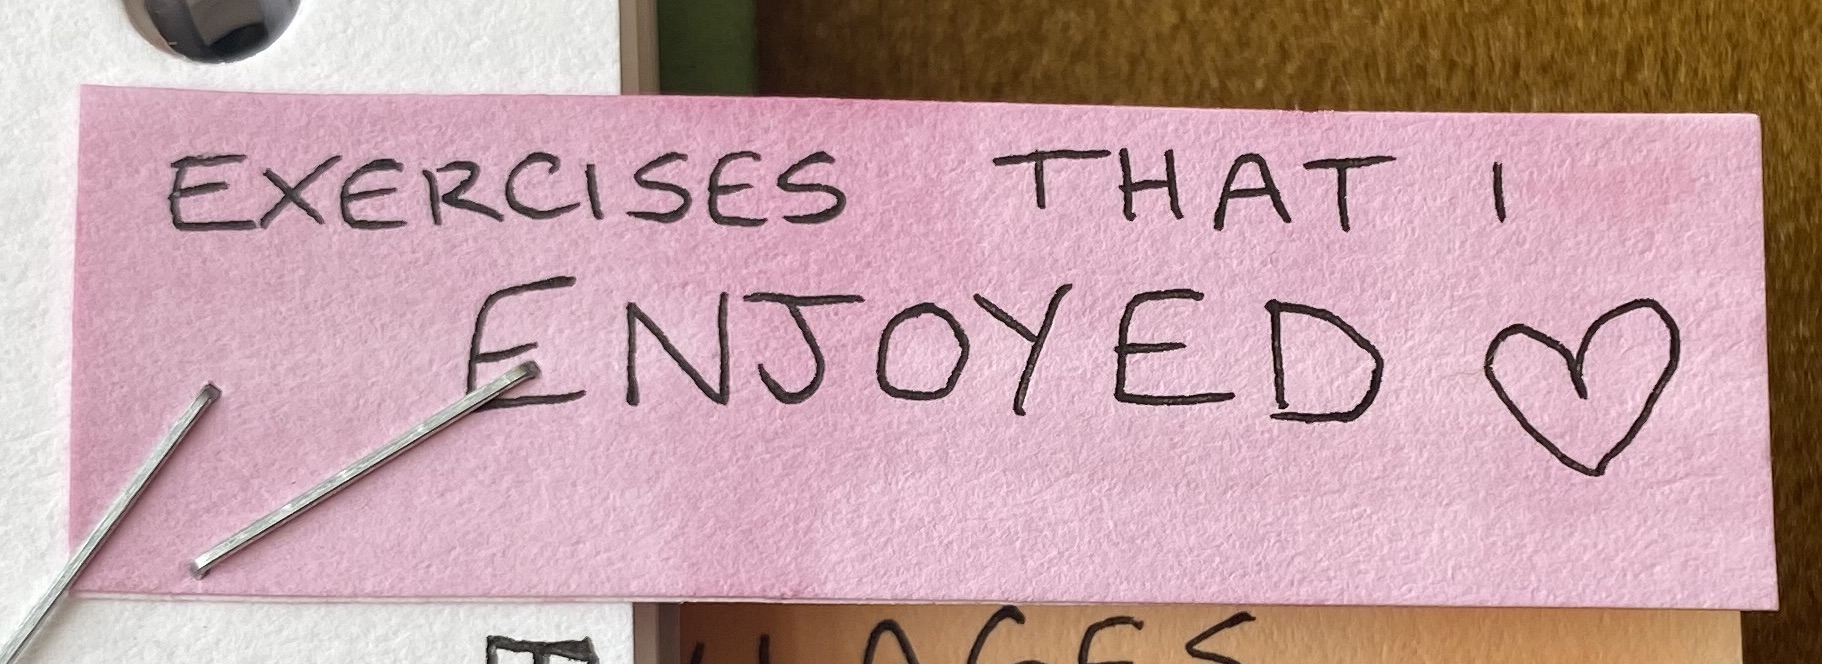 EXERCISES THAT I
ENJOYED ♡